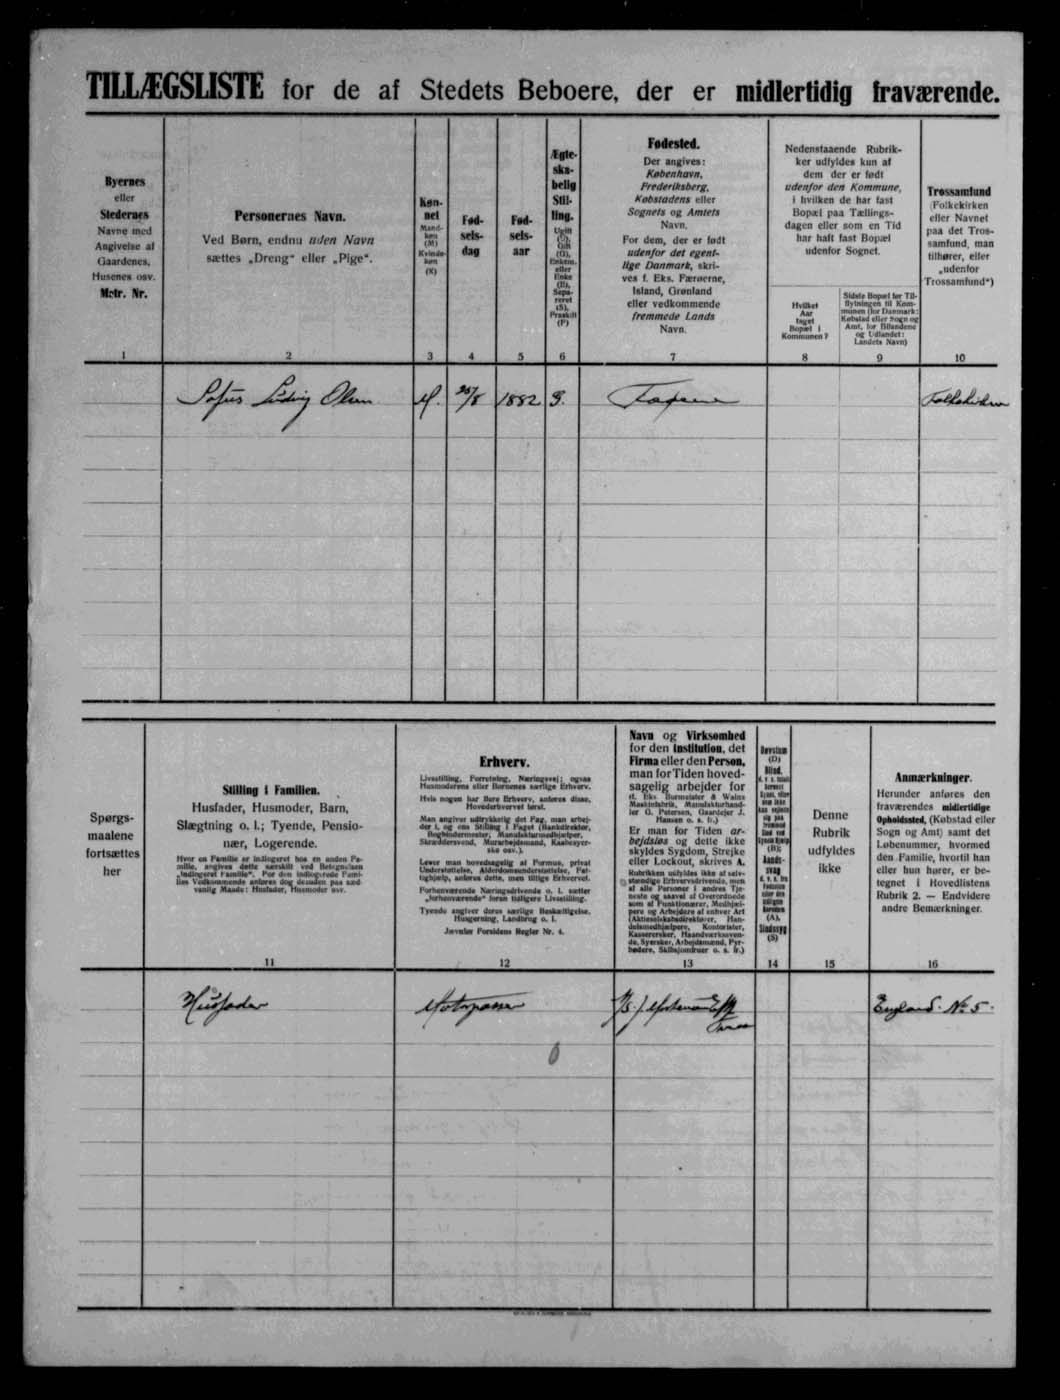 TILLÆGSLISTE for de af Stedets Beboere, der er midlertidig fraværende.
Byernes
eller
Stedernes
Navne med
Angivelse af
Gaardenes,
Husenes osv.
Matr. Nr.
1
Personernes Navn.
Ved Børn, endnu uden Navn
sættes „Dreng“ eller „Pige“.
2
Køn-
net
Mand-
køn
(M)
Kvinde-
køn
(K)
3
Fød-
sels-
dag
4
Fød-
sels-
aar
5
Ægte-
ska-
belig
Stil-
ling.
Ugift
(U),
Gift
(G),
Enkem.
eller
Enke
(E),
Sepa-
reret
(S),
Fraskilt
(F)
6
Fødested.
Der angives:
København,
Frederiksberg,
Købstadens eller
Sognets og Amtets
Navn.
For dem, der er født
udenfor det egent-
lige Danmark, skri-
ves f. Eks. Færøerne,
Island, Grønland
eller vedkommende
fremmede Lands
Navn.
7
Nedenstaaende Rubrik-
ker udfyldes kun af
dem der er født
udenfor den Kommune,
i hvilken de har fast
Bopæl paa Tællings-
dagen eller som en Tid
har haft fast Bopæl
udenfor Sognet.
Hvilket
Aar
taget
Bopæl i
Kommunen?
8
Sidste Bopæl før Til-
flytningen til Kom-
munen (for Danmark:
Købstad eller Sogn og
Amt, for Bilandene
og Udlandet:
Landets Navn)
9
Trossamfund
(Folkekirken
eller Navnet
paa det Tros-
samfund, man
tilhører, eller
„udenfor
Trossamfund“)
10
Sofus Ludvig Olsen M. 1882 G. Folkekirken
Spørgs-
maalene
fortsættes
her
Stilling i Familien.
Husfader, Husmoder, Barn,
Slægtning o. l.; Tyende, Pensio-
nær, Logerende.
Hvor en Familie er indlogeret hos en anden Fa-
milie, angives dette særskilt ved Betegnelsen
„indlogeret Familie“. For den indlogerede Fami-
lies Vedkommende anføres dog desuden paa sæd-
vanlig Maade: Husfader, Husmoder osv.
11
Erhverv.
Livsstilling, Forretning, Næringsvej; ogsaa
Husmoderens eller Børnenes særlige Erhverv.
Hvis nogen har flere Erhverv, anføres disse,
Hovederhvervet først.
Man angiver udtrykkelig det Fag, man arbej-
der i, og ens Stilling i Faget (Bankdirektør,
Bogbindermester, Manufakturmedhjælper,
Skræddersvend, Murarbejdsmand, Kaabesyer-
ske osv.).
Lever man hovedsagelig af Formue, privat
Understøttelse, Alderdomsunderstøttelse, Fat-
tighjælp, anføres dette, men tillige Erhvervet.
Forhenværende Næringsdrivende o. l. sætter
„forhenværende“ foran tidligere Livsstilling.
Tyende angiver deres særlige Beskæftigelse,
Husgerning, Landbrug o. l.
Jævnfør Forsidens Regler Nr. 4.
12
Navn og Virksomhed
for den Institution, det
Firma eller den Person,
man for Tiden hoved-
sagelig arbejder for
(f. Eks. Burmeister & Wains
Maskinfabrik, Manufakturhand-
ler G. Petersen, Gaardejer J.
Hansen o. s. fr.)
Er man for Tiden ar-
bejdsløs og dette ikke
skyldes Sygdom, Strejke
eller Lockout, skrives A.
Rubrikken udfyldes ikke af selv-
stændige Erhvervsdrivende, men
af alle Personer i andres Tje-
neste og saavel af Overordnede
som af Funktionærer, Medhjæl-
pere og Arbejdere af enhver Art
(Aktieselskabsdirektører, Han-
delsmedhjælpere, Kontorister,
Kassererske, Haandværkssven-
de, Syersker, Arbejdsmænd, Fyr-
bødere, Skibsjomfruer o. s. fr.)
13
Døvstum
(D)
Blind,
(B);
Aands-
svag
(A),
Sindssyg
(S)
14
Denne
Rubrik
udfyldes
ikke
15
Anmærkninger.
Herunder anføres den
fraværendes midlertidige
Opholdssted, (Købstad eller
Sogn og Amt) samt det
Løbenummer, hvormed
den Familie, hvortil han
eller hun hører, er be-
tegnet i Hovedlistens
Rubrik 2. — Endvidere
andre Bemærkninger.
16
Husfader Motorpasser England. No 5.